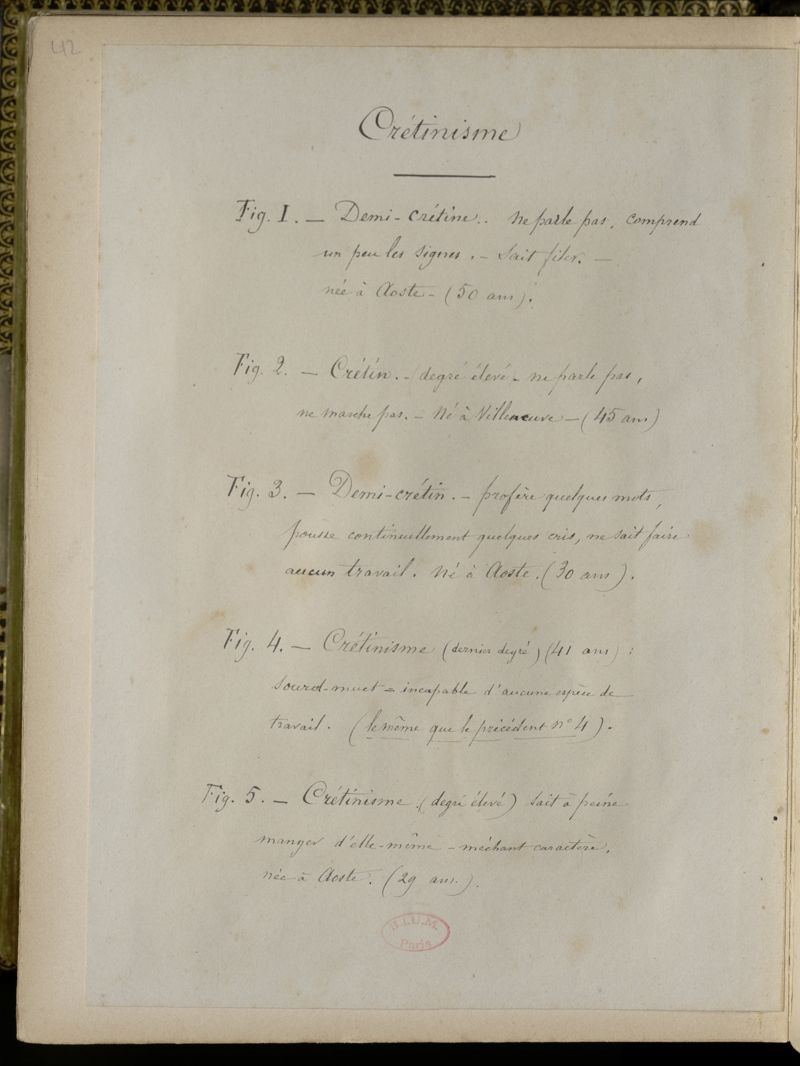 42
Crétinisme
Fig. I. — Demi-crétine.. Ne parle pas, comprend
un peu les signes. — Sait filer. —
née à Aoste — (50 ans).
Fig. 2. — Crétin. — (degré élevé — ne parle pas,
ne marche pas. — Né à Villeneuve — (45 ans)
Fig. 3. — Demi-crétin. — profère quelques mots,
pousse continuellement quelques cris, ne sait faire
aucun travail. Né à Aoste. (30 ans).
Fig. 4. — Crétinisme (dernier degré) (41 ans) :
Sourd-muet = incapable d'aucune espèce de
travail. (le même que le précédent n° 4).
Fig. 5. — Crétinisme. (degré élevé) Sait à peine
manger d'elle-même — méchant caractère,
née à Aoste. (29 ans.).
B.I.U.M.
Paris